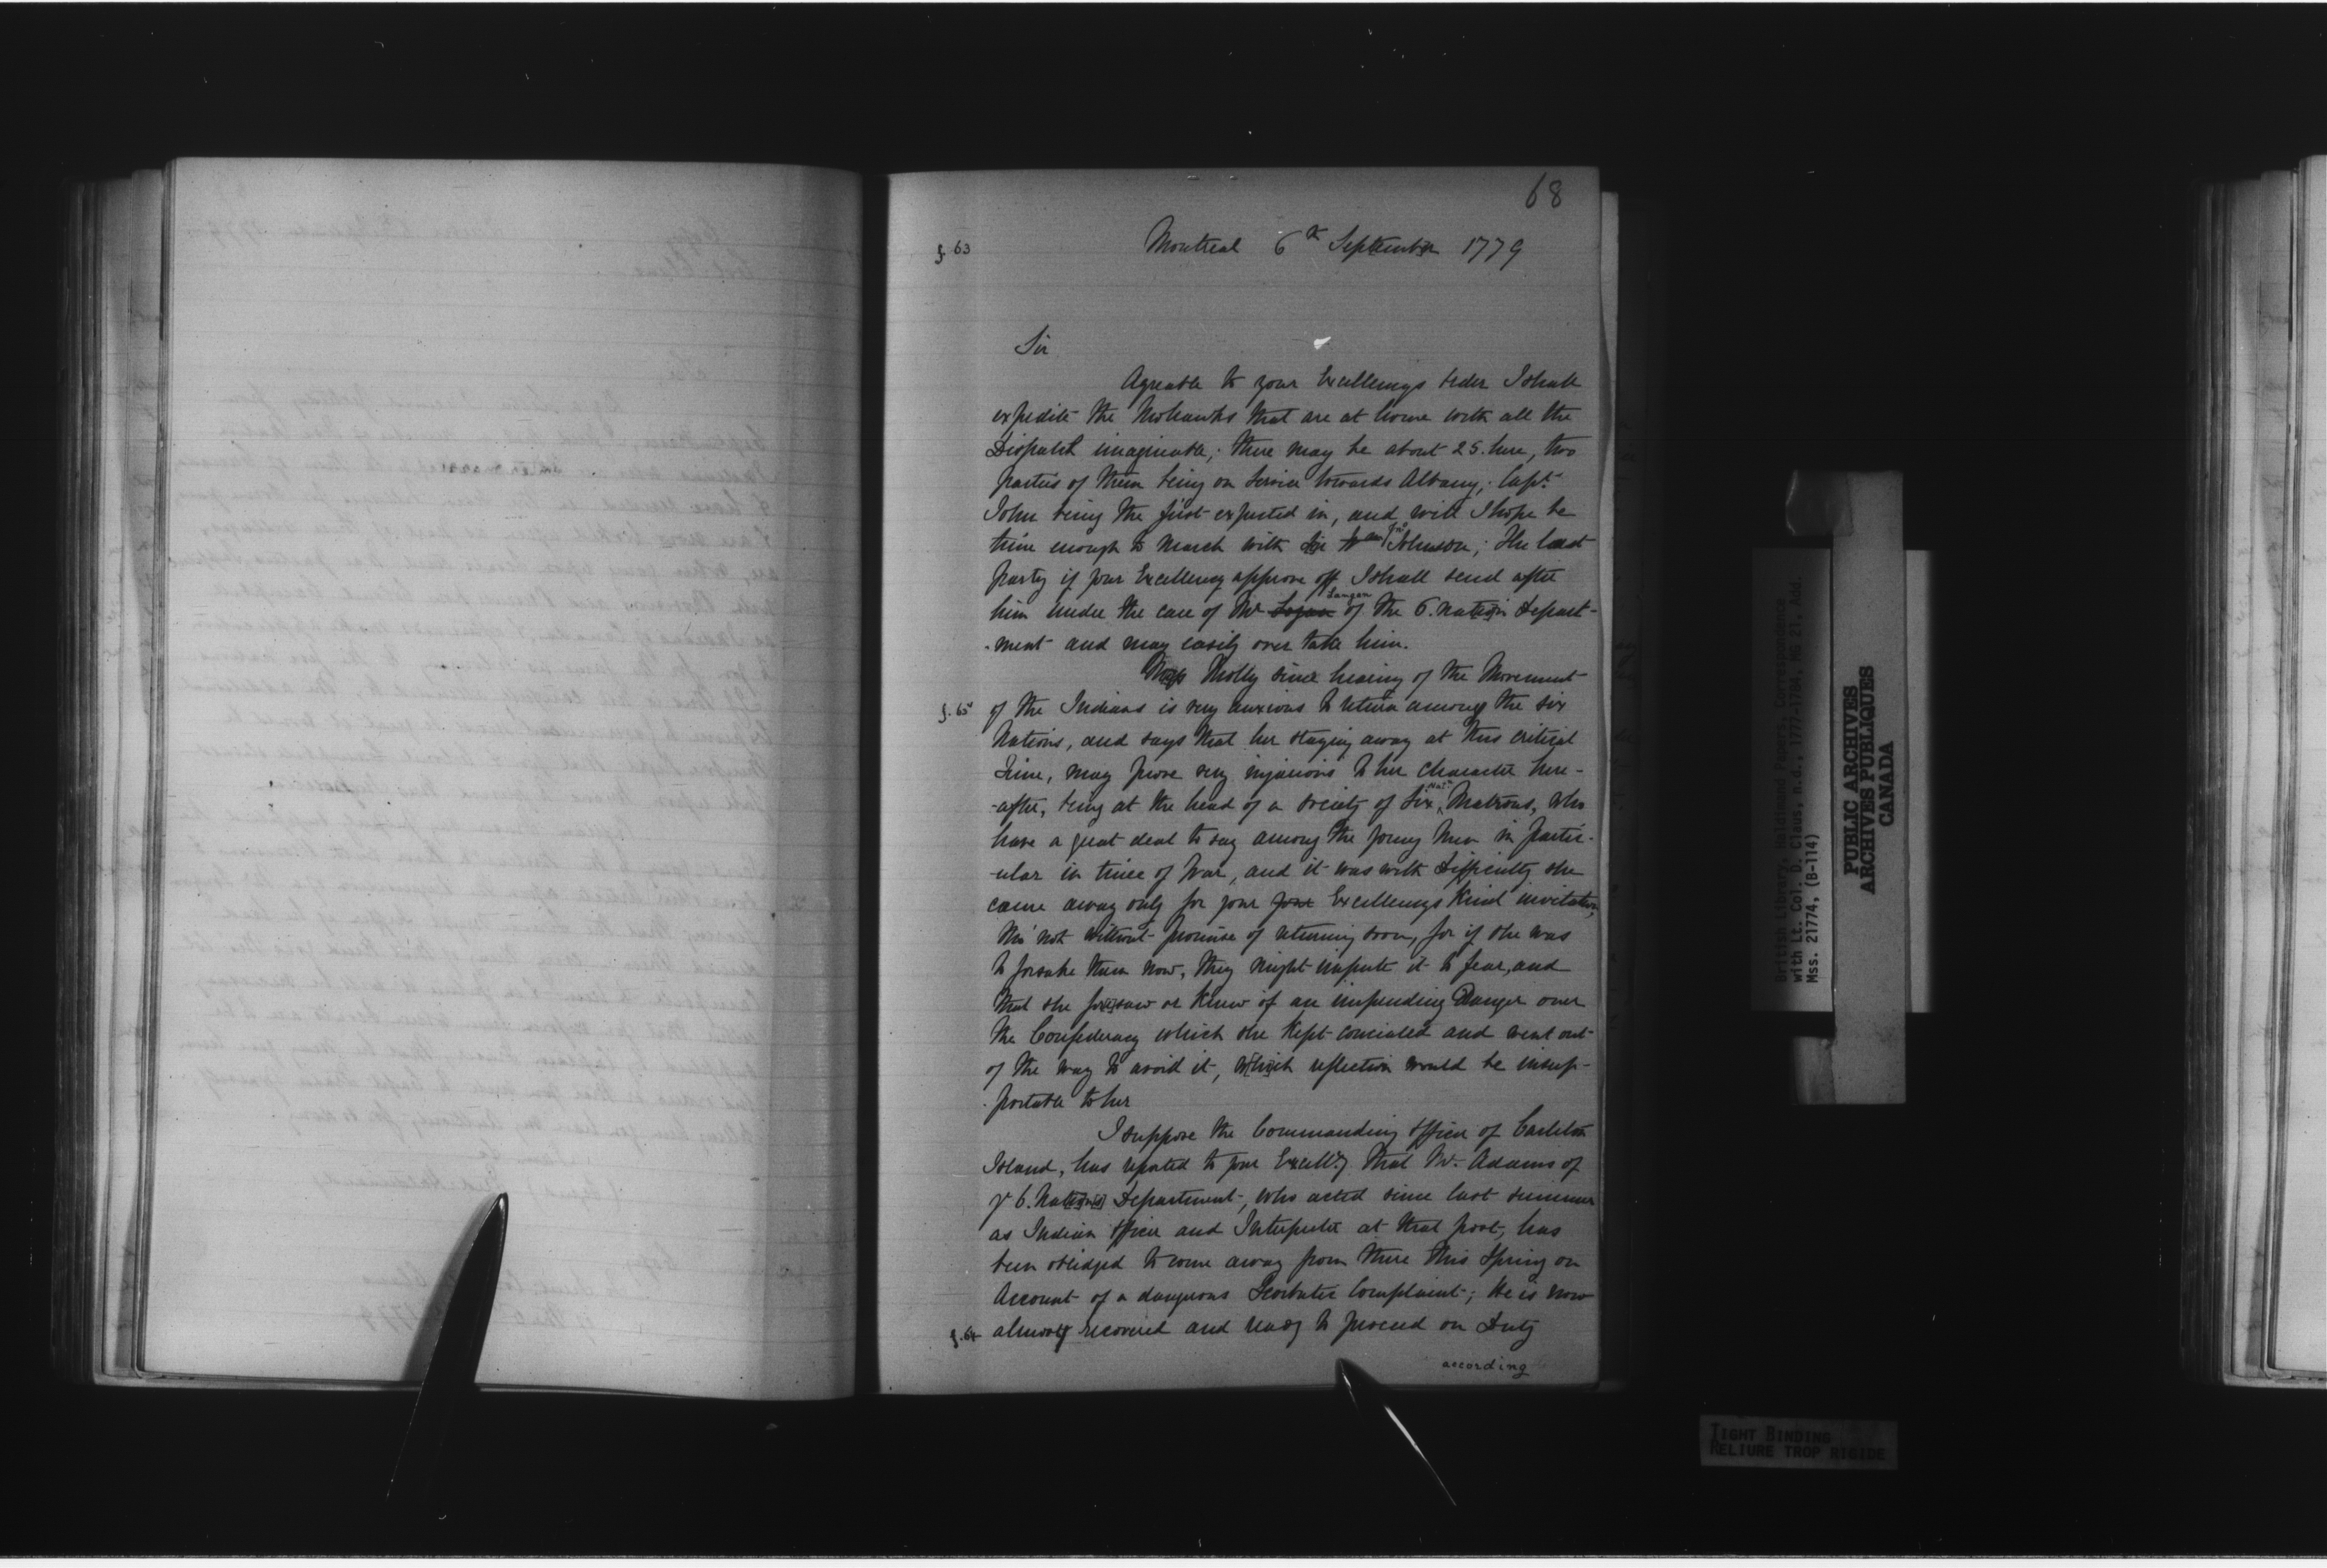 68
f. 63
Montreal 6th September 1779
Sir
Agreable to your Excellencys order I shall
expedite the Mohawks that are at home with all the
Dispatch imaginable; there may be about 25. here, two
parties of them being on Service towards Albany; Capt.
John being the first expected in, and will I hope be
time enough to March with Sir Jno Johnson; The last
party if your Excellency approve off I shall send after
him under the care of Mr Langan of the 6. Nation Depart-
-ment and may easily over take him.
Molly since hearing of the Movement
f. 63v of the Indians is very anxious to return among the Six
Nations, and says that her staying away at this critical
Time, may prove very injurious to her character here-
-after, being at the head of a Society of Six Nat. Matrons, who
have a great deal to say among the young Men in partic-
-ular in time of War, and it was with Difficulty she
came away only for your your Excellencys Kind invitation,
tho' not without promise of returning soon, for if she was
to forsake them now, they might impute it to fear, and
that she foresaw or knew of an impending Danger over
the Confederacy which she kept concealed and went out
of the way to avoid it, which reflection would be insup-
-portable to her
I suppose the Commanding Officer of Carleton
Island, has reported to your Excell'cy that Mr. Adams of
ye 6. Nations Department, who acted since last summer
as Indian Officer and Interpreter at that post, has
been obliged to come away from there this Spring on
Account of a dangerous Scorbutic Complaint; He is now
f. 64 almost recovered and ready to proceed on Duty
according
British Library, Haldimand Papers, Correspondence
with Lt. Col. D. Claus, n.d., 1777-1784, MG 21, Add.
Mss. 21774, (B-114)
PUBLIC ARCHIVES
ARCHIVES PUBLIQUES
CANADA
TIGHT BINDING
RELIURE TROP RIGIDE